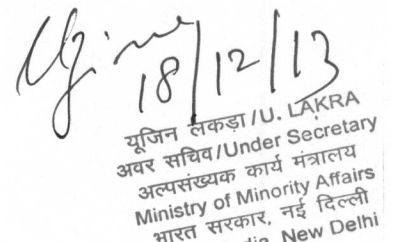 18/12/13
यूजिन लकड़ा/U. LAKRA
अवर सचिव/Under Secretary
अल्पसंख्यक कार्य मंत्रालय
Ministry of Minority Affairs
भारत सरकार, नई दिल्ली
New Delhi